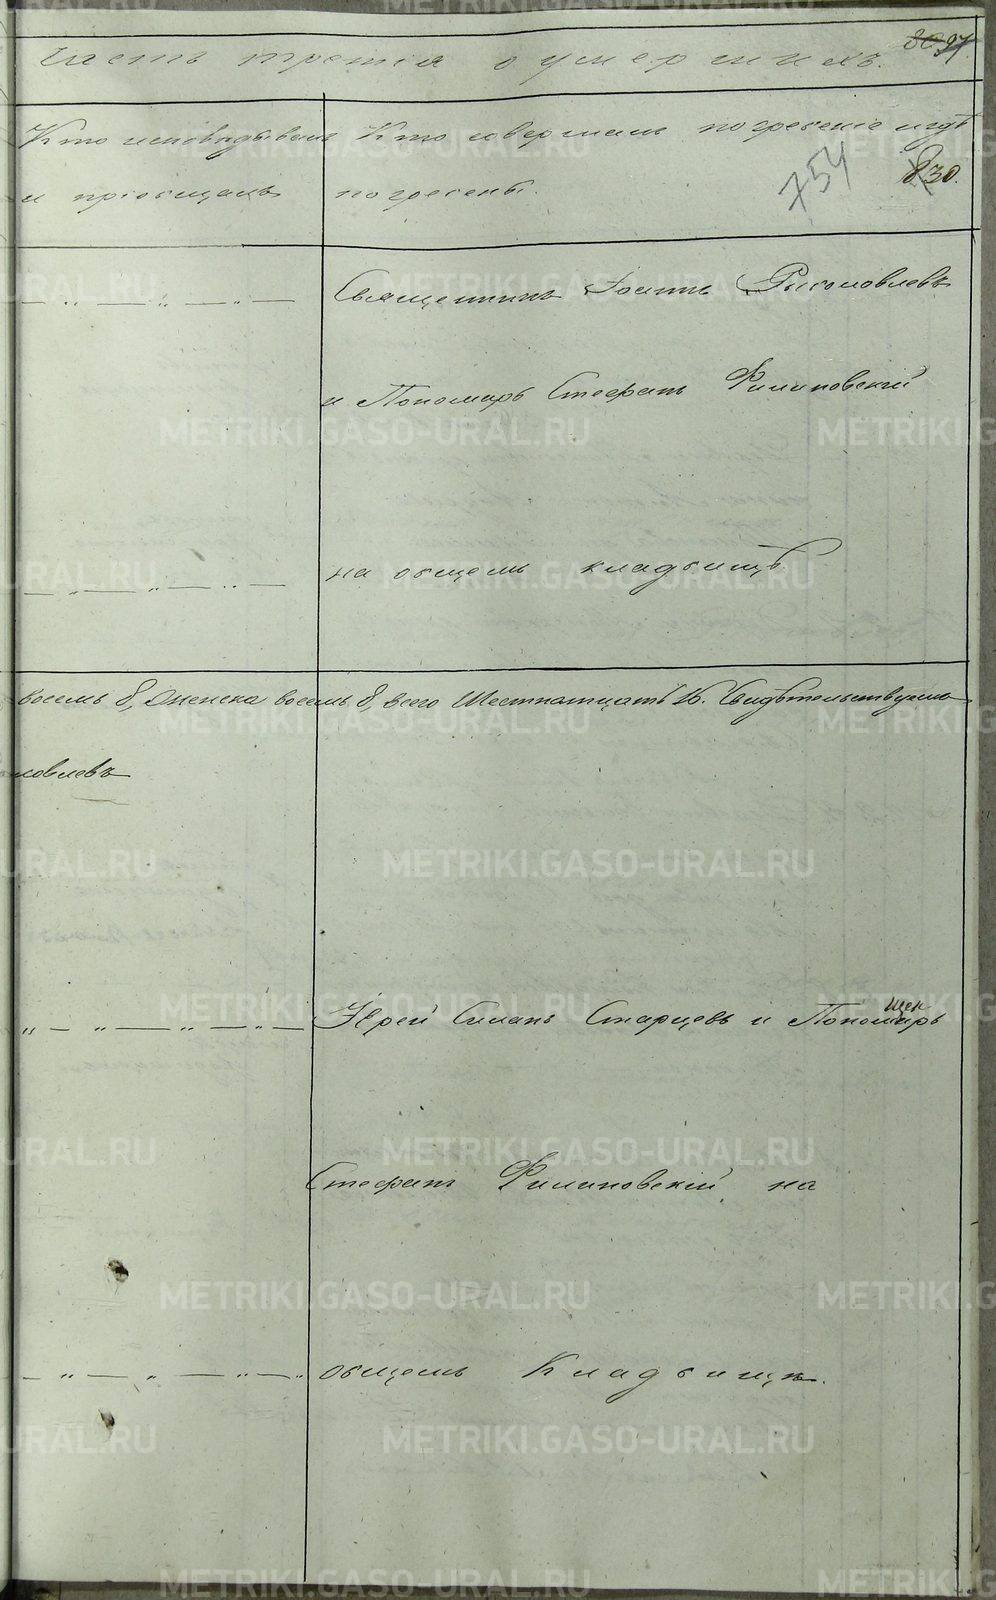 Часть третія о умершихъ.
80 97
Кто исповѣдывалъ и пріобщалъ
Кто совершалъ погребеніе и гдѣ
погребены.
754
830.
Священникъ Іоаннъ
и Пономарь Стефанъ Филиповскій
на общемъ кладбищѣ
восемь 8, Женска восемь 8, всего Шестнатцать 16. Свидѣтельствуемъ
ловлевъ
Іерей Симанъ Старцевъ и Пономарь
Стефанъ Филиповскій на
общемъ Кладбищѣ.
METRIKI.GASO-URAL.RU